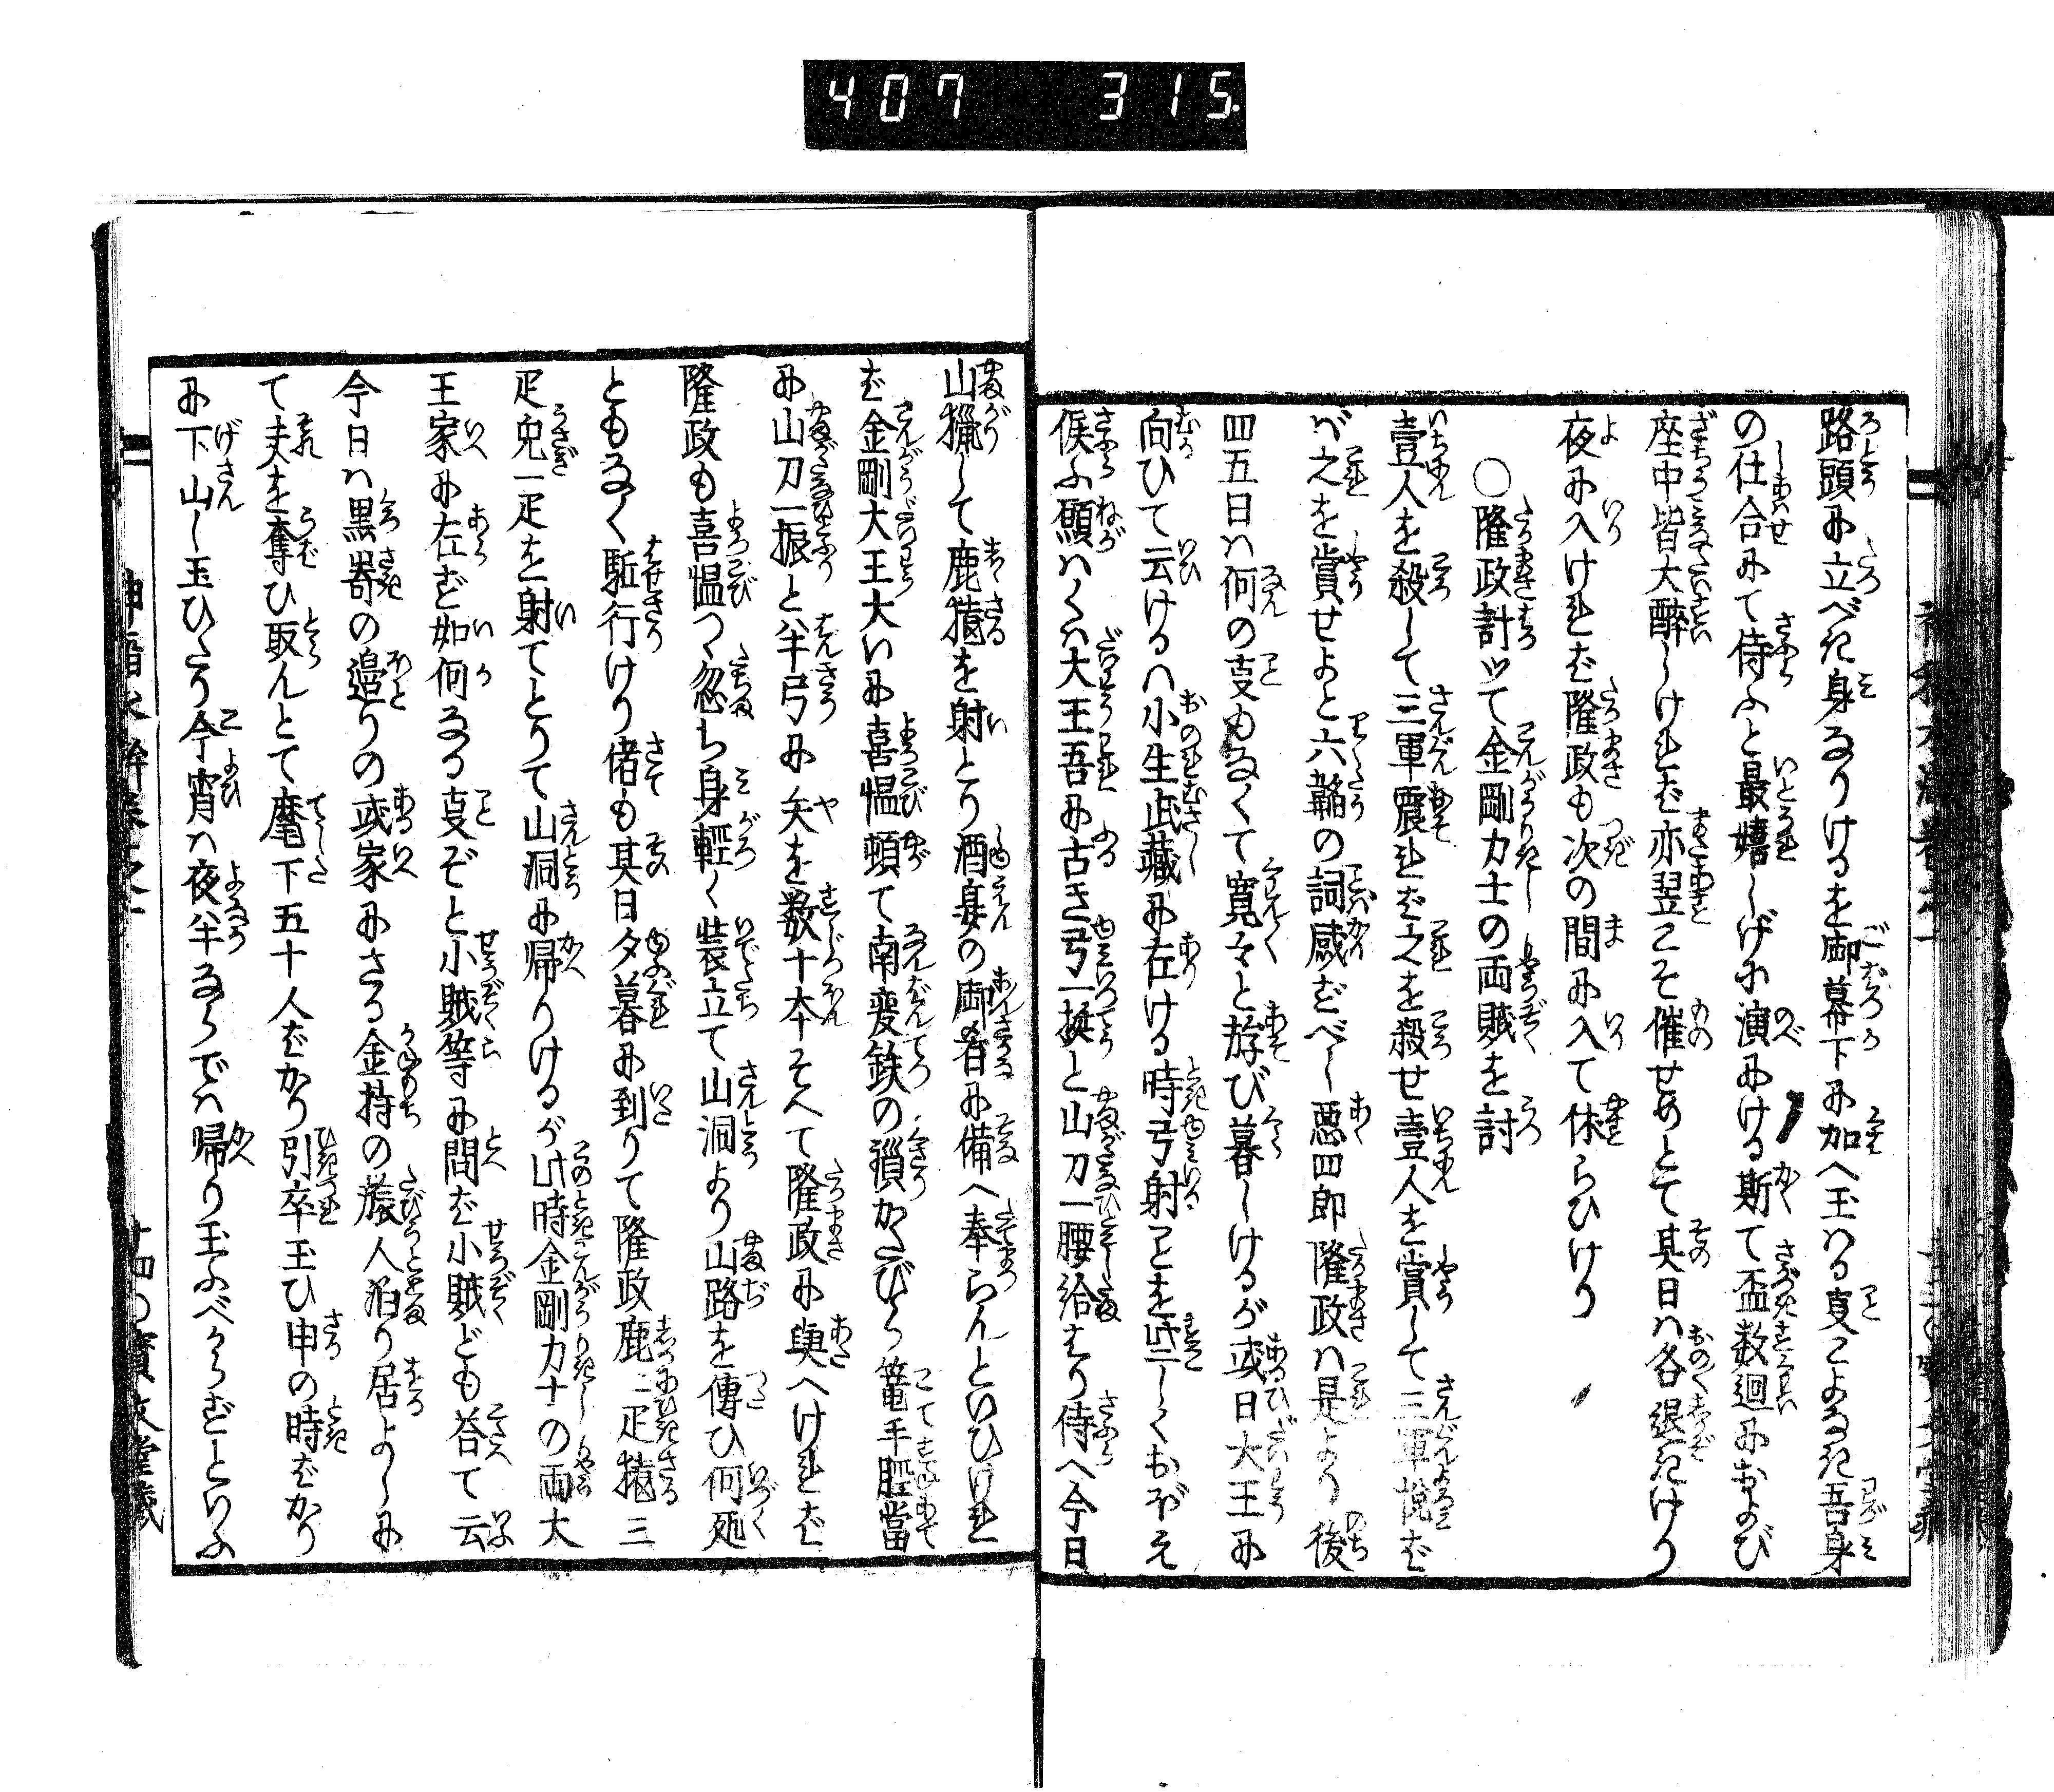 407 315.
路頭に立べき身なりけるを御幕下に加へ玉はる事こよなき吾身
の仕合にて侍ふと最嬉しげに演にける斯て盃数廻におよび
座中皆大酔しければ亦翌こそ催せめとて其日は各退きけり
夜に入ければ隆政も次の間に入て休らひけり
○隆政計ッて金剛力士の両賊を討
壹人を殺して三軍震ば之を殺せ壹人を賞して三軍悦ば
ば之を賞せよと六韜の詞感ずべし悪四郎隆政は是より後
四五日は何の事もなくて寛々と遊び暮しけるが或日大王に
向ひて云けるは小生武藏に在ける時弓射ことを些しくおぼえ
候ふ願はくは大王吾に古き弓一挺と山刀一腰給はり侍へ今日
山獵して鹿猿を射とり酒宴の御肴に備へ奉らんといひけれ
ば金剛大王大いに喜悦頓て南蛮鉄の鎖かたびら篭手脛當
に山刀一振と半弓に矢を数十本そへて隆政に與へければ
隆政も喜悦つゝ忽ち身輕く装立て山洞より山路を傳ひ何処
ともなく駈行けり偖も其日夕暮に到りて隆政鹿二疋猿三
疋兎一疋を射てとりて山洞に帰りけるが此時金剛力士の両大
王家に在ず如何なる事ぞと小賊等に問ば小賊ども荅て云
今日は黒嵜の邉りの或家にさる金持の旅人泊り居よしに
て夫を奪ひ取んとて麾下五十人ばかり引卒玉ひ申の時ばかり
に下山し玉ひたり今宵は夜半ならでは帰り玉ふべからずといふ